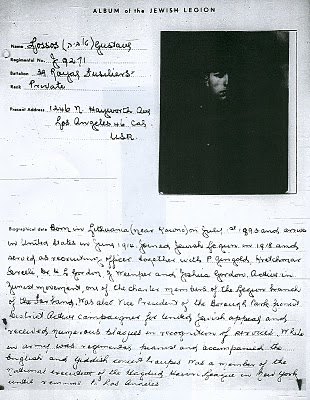 ALBUM of the JEWISH LEGION
Name Gustave
Regimental No. J 9271
Battalion 39 Royal Fusiliers
Rank Private
Present Address 1246 N Hayworth Ave
Los Angeles 46 Cal.
USA
Biographical data Born in Lithuania (near Kovno) on July 1st 1893 and
in United States in June 1914. Joined Jewish Legion in 1918 and
served as recruiting officer together with P. Gingold,
Dr. H. L. Gordon, and Joshua Gordon. Active in
Zionist movement, one of the charter members of the Legion branch
of the Farband. Was also Vice President of the Borough Park Zionist
District Active campaigner for United Jewish appeal and
received numerous plaques in recognition of service. While
in army was regimental pianist and accompanied the
English and Yiddish concert troupes Was a member of the
national executive of the League in New York
until Los Angeles